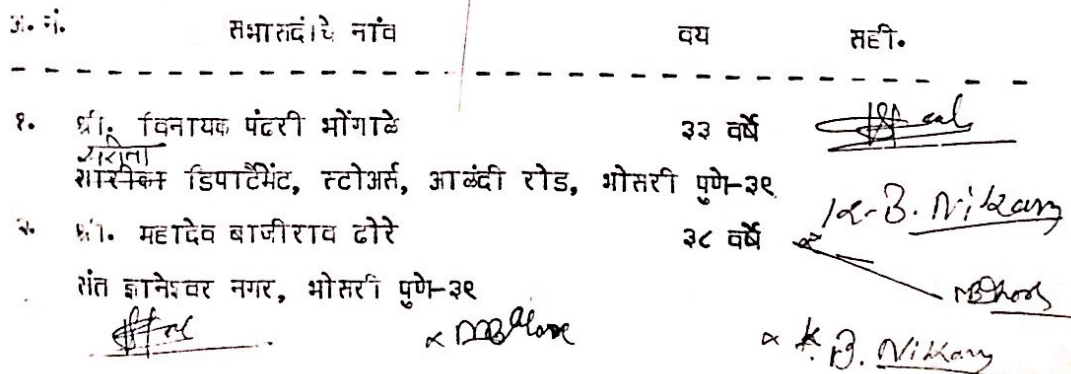 अ. नं. सभासदांचे नांव वय सही.
१. श्री. विनायक पंढरी भोंगाळे ३३ वर्षे
सरीता
सारीका डिपार्टमेंट, स्टोअर्स, आळंदी रोड, भोसरी पुणे-३९
K.B. Nikam
२. श्री. महादेव बाजीराव ढोरे ३८ वर्षे
संत ज्ञानेश्वर नगर, भोसरी पुणे-३९
K. B. Nikam